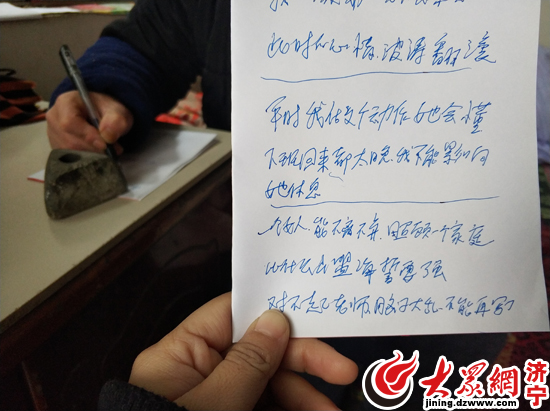 此时心情波涛翻滚
平时我做这个动作她也会懂
下班回来都太晚,我不能影响
她休息
女人,能不离不弃,照顾一个家庭
比什么山盟海誓要强
对不起了老师,脑子太乱,不能再写了
大众网 济宁
jining.dzwww.com